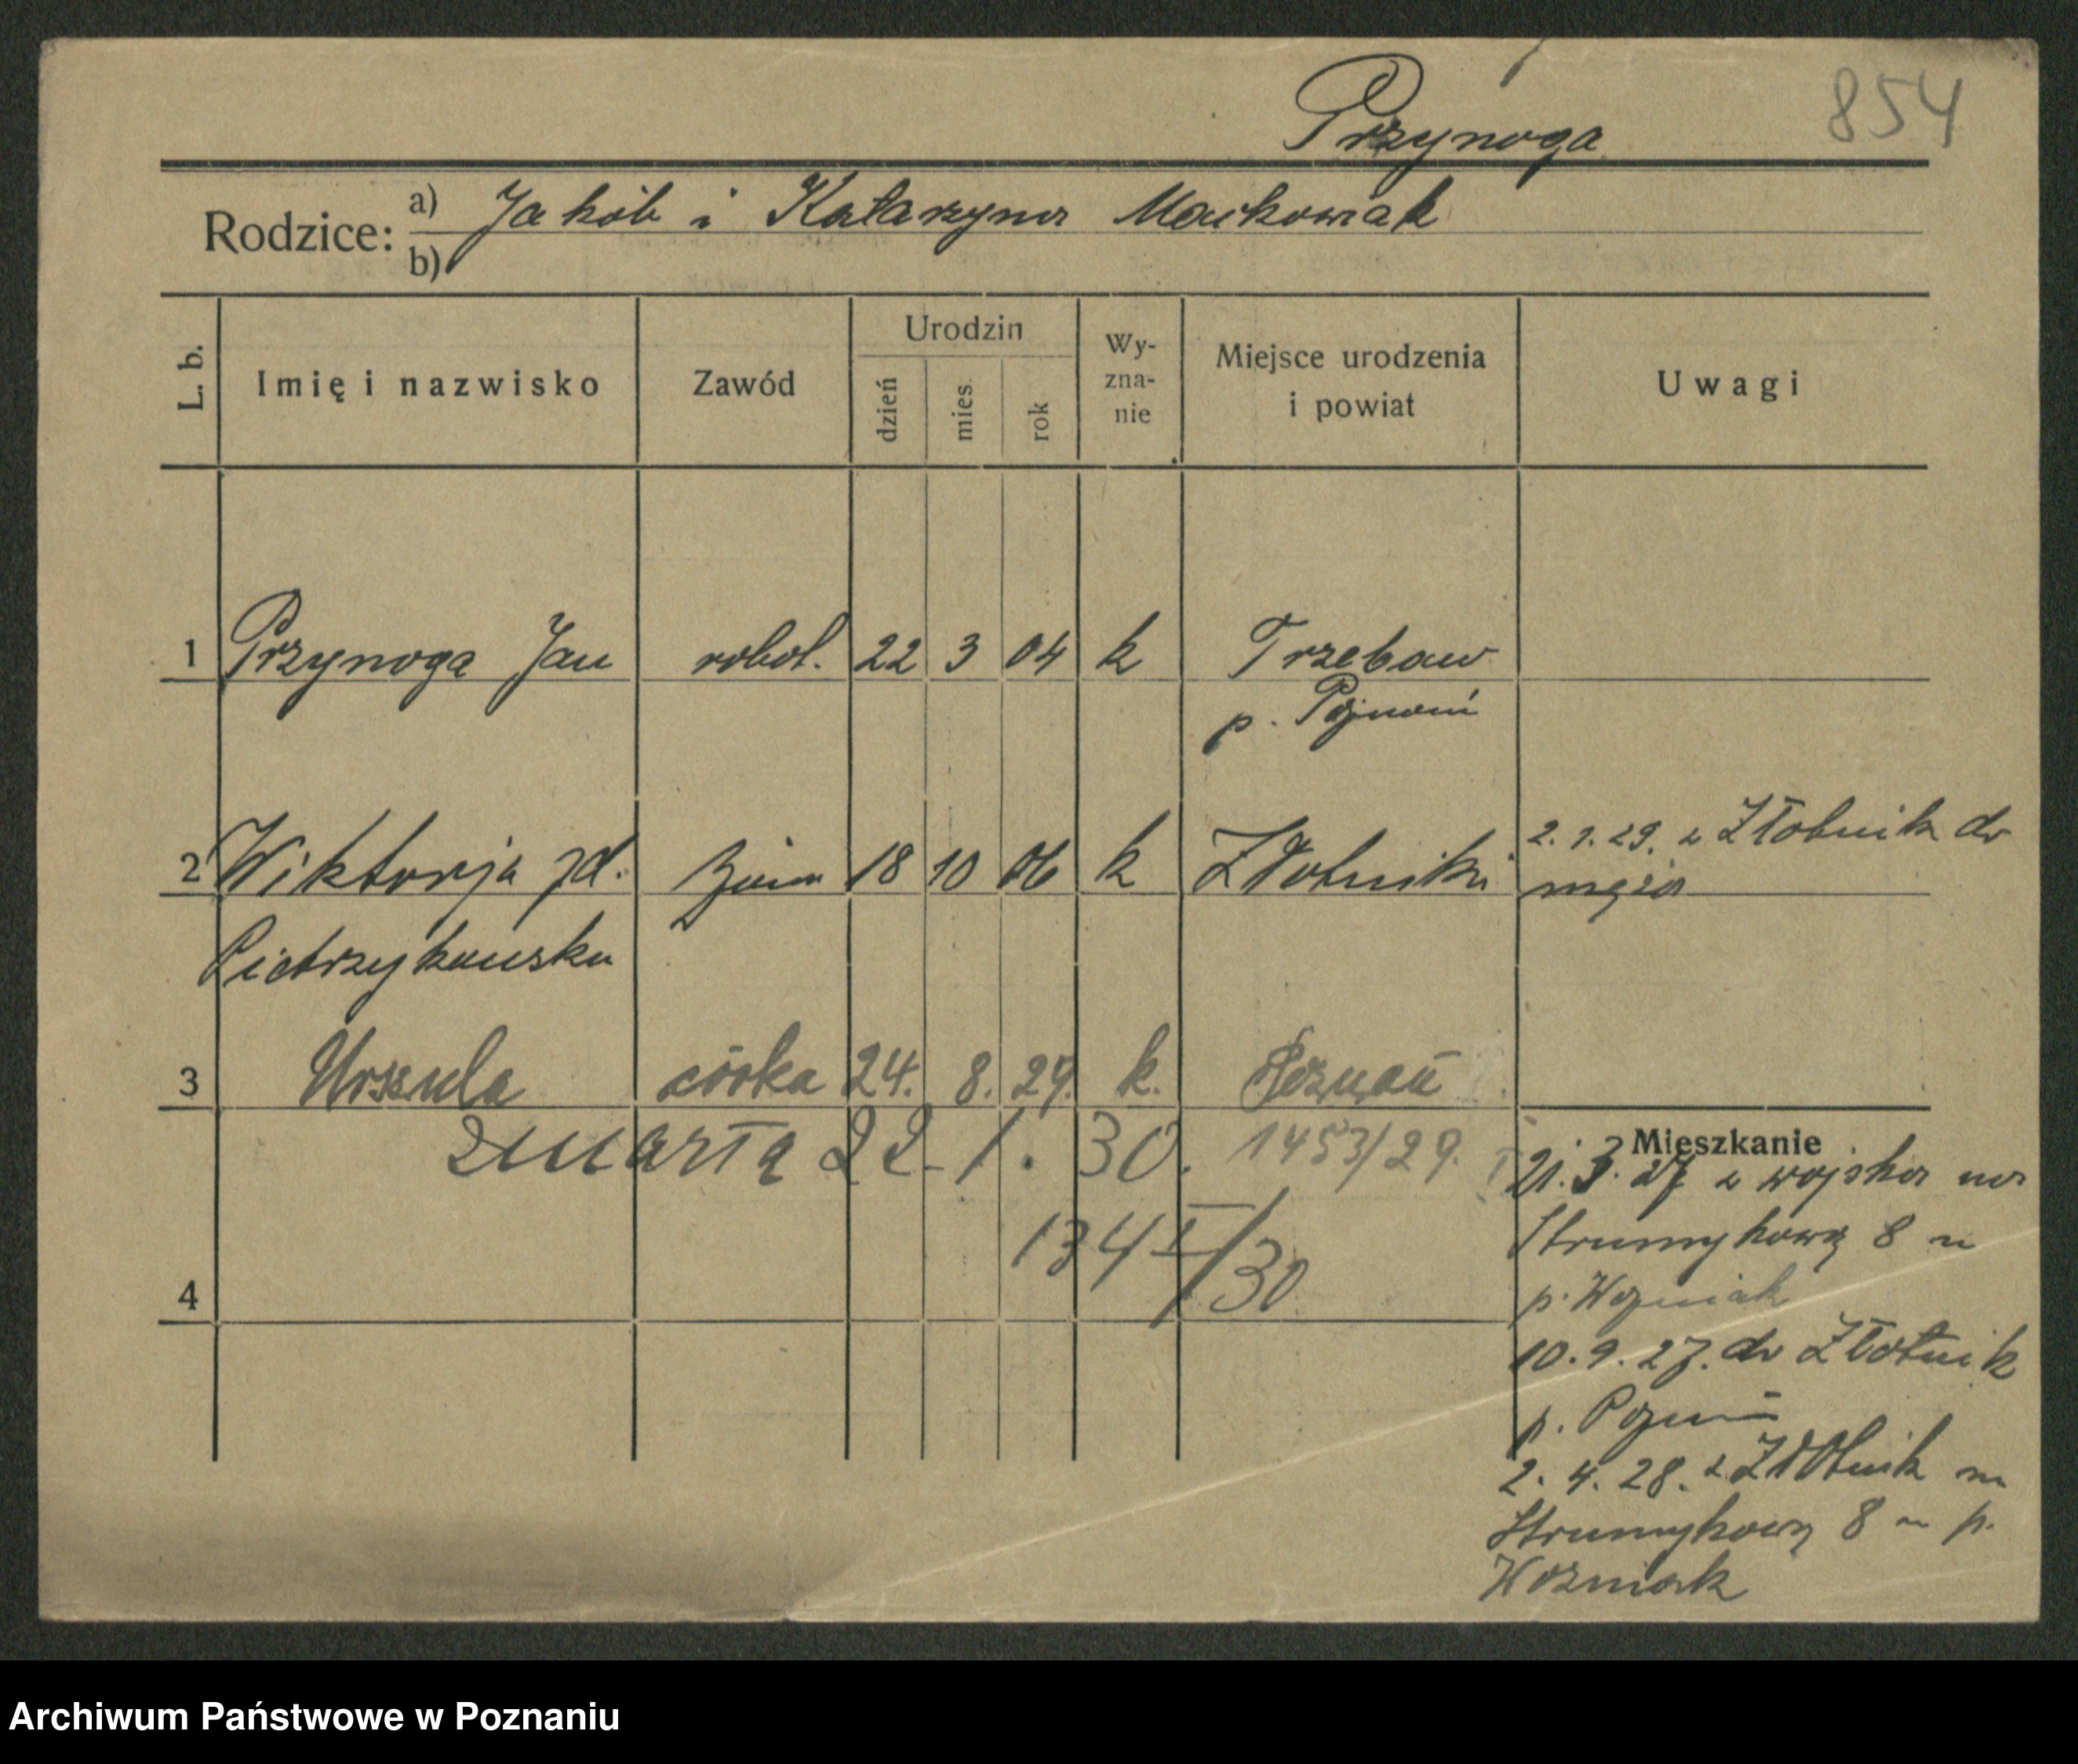 Przynoga 854
Rodzice: a) Jakób i Katarzyna Maćkowiak
b)
L. b. Imię i nazwisko Zawód Urodzin dzień mies. rok Wyznanie Miejsce urodzenia i powiat Uwagi
1 Przynoga Jan robot. 22 3 04 k Trzebaw
p. Poznań
2. 1. 29. z Złotnik do
2 Wiktorja zd. żona 18 10 06 k Złotniki męża
Pietrzykowska
3 Urszula córka 24. 8. 29. k. Poznań
zmarła 22-1. 30. 1453/29.
134 I/30
4
Mieszkanie
21. 3. 27 z wojska na
Strumykową 8 u
p. Wozniak
10. 9. 27. do Złotnik
p. Pozn
2. 4. 28. z Złotnik na
Strumykową 8 u p.
Wozniak
Archiwum Państwowe w Poznaniu